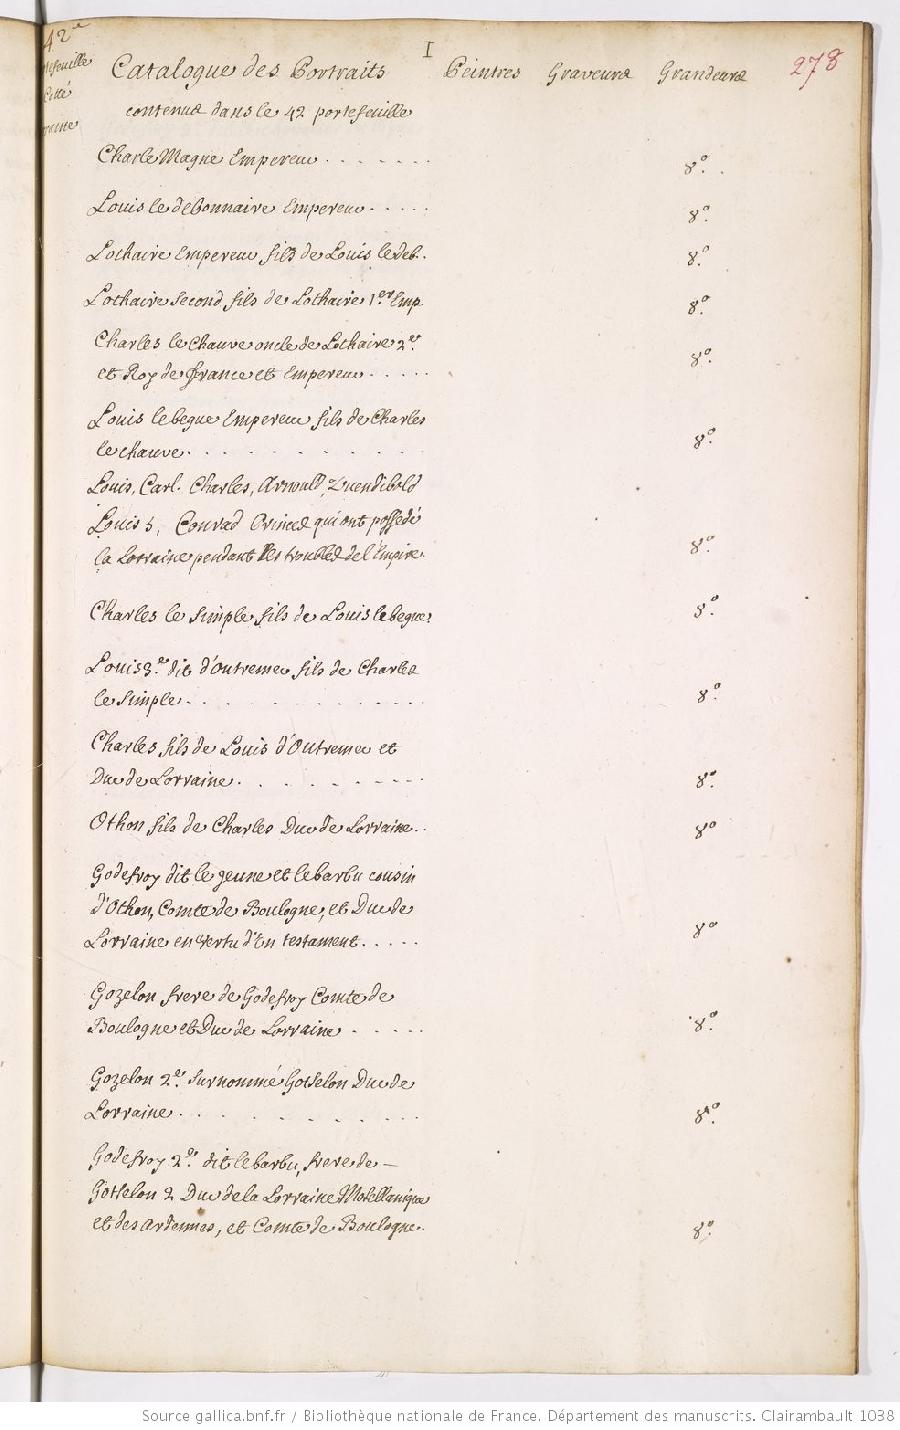 42e
I
278
Catalogue des Portraits Peintres Graveurs Grandeurs
contenus dans le 42 portefeuille
CharleMagne Empereur . . . . . . . 8°. .
Louis le debonnaire Empereur . . . . . 8°.
Lothaire Empereur fils de Louis le deb. . 8°.
Lothaire second fils de Lothaire 1.er Emp. 8°.
Charles le Chauve oncle de Lothaire 2.e
et Roy de france et Empereur . . . . . 8°.
Louis le begue Empereur fils de Charles
le chauve . . . . . . . . . 8°.
Louis, Carl. Charles, Arnould, Zuendibold
Louis 5, Conrad Princes qui ont possedé
la Lorraine pendant les troubles de l'Empire 8°.
Charles le simple fils de Louis le begue. 8°.
Louis 3.e dit d'outremer fils de Charles
le simple . . . . . . . . . 8°.
Charles fils de Louis d'Outremer et
Duc de Lorraine . . . . . . . . . 8°.
Othon fils de Charles Duc de Lorraine . . 8°
Godefroy dit le jeune et le barbu cousin
d'Othon, Comte de Boulogne, et Duc de
Lorraine en vertu d'un testament . . . . . 8°
Gozelon frere de Godefroy Comte de
Boulogne et Duc de Lorraine . . . . . 8°.
Gozelon 2.e surnommé Gothelon Duc de
Lorraine . . . . . . . . . 8°.
Godefroy 2.e dit le barbu, frere de —
Gothelon 2 Duc de la Lorraine Mosellanique
et des ardennes, et Comte de Boulogne . 8°.
Source gallica.bnf.fr / Bibliothèque nationale de France. Département des manuscrits. Clairambault 1038